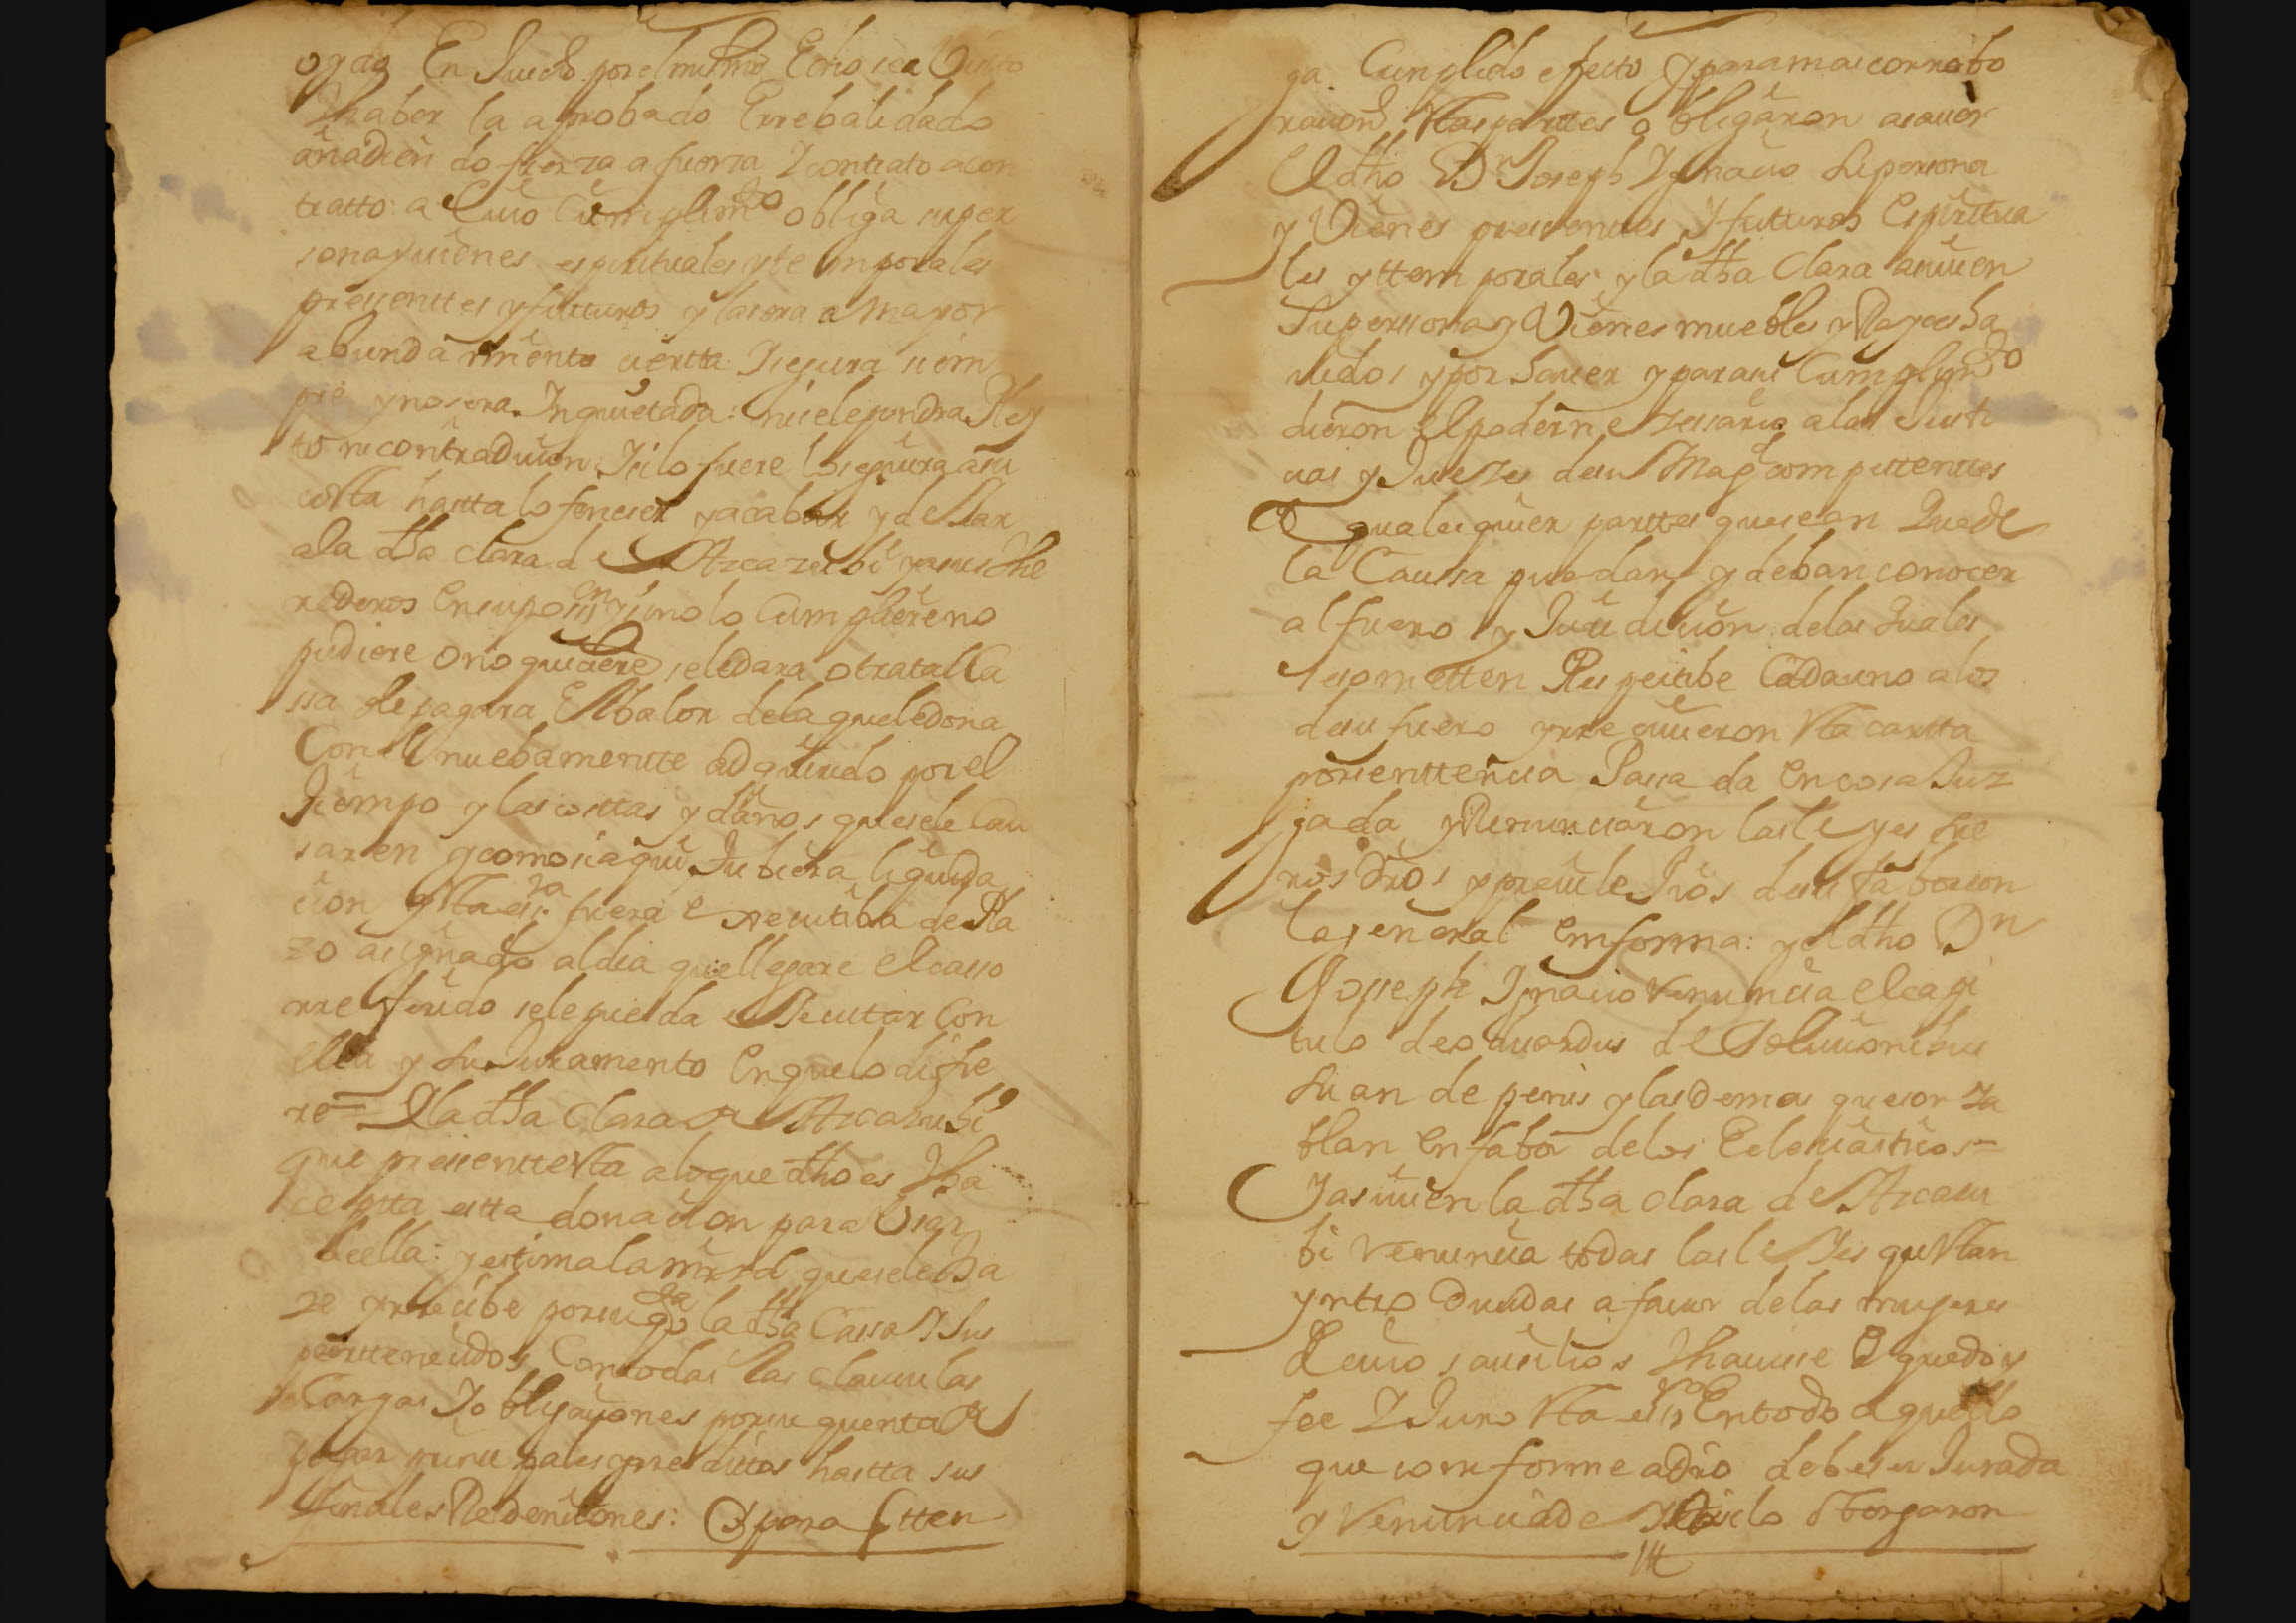 oydo En Juicio por el mismo Echo sea Visto
Yhaber la aprobado Errebalidado
añadien do fuerza a fuerza Y contrato acon
tratto: a Cuio Cumplimto obliga super
sonayvienes espirituales yte mporales
pressenttes yfutturos ylasera a mayor
abundamiento cierta Ysegura siem
pre ynosera Inquietada: nisele pondra Pley
to ni contradicion: Ysilo fuere lo seguira asu
costta hastta lo fenecer yacabar ydexar
ala dha clara de Arcazubi ysus Yhe
rederos En suposession ysino lo Cumpliere no
pudiere o no quisiere sele dara otra tal Ca
ssa sele pagara El balor dela quele dona
Con el nuebamentte adquirido por el
tiempo y las costtas y daños quesele Cau
saren ycomo siaqui Jubiera liquida
cion y esta essra fuera executiba de Pla
zo asignado aldia quellegare elcasso
rreferido sele pueda executar Con
ella y su Juramento En quelo difie
re= Y la dha Clara de Arcazubi
que pressentte esta alo que dho es Yha
ceptta estta donacion para Usar
deella: y estima la mrrd quesele ha
ze yrrecibe por suya la dha Cassa Y sus
perttenecidos Con todas las Clausulas
Cargas Y obligaziones por su quenta de
pagar principales yrreditos hastta sus
finales Redenciones: Y para q tten
ga Cumplido efecto Y para mas corrobo
racion estas parttes obligaron asaver
El dho Dn Joseph Ygnacio su persona
y Vienes pressenttes Y futturos Espiritua
les yttemporales: y la dha Clara asimen
Superssona y Vienes muebles y Rayces ha
vidos y por haver y para su Cumplimto
dieron El poder nezessario a las Justi
cias y Juezes de su Magd competenttes
de qualesquier parttes que sean Que de
la Caussa puedan y deban conocer
al fuero y Jurisdicion de las Quales
se somетten Respectibe Cada uno alos
de su fuero yrrecivieron esta cartta
por senttencia Passada En cosa Juz
gada y Renunciaron las leyes fue
ros dros y previlejios de su fabor con
la general En forma: y el dho Dn
Joseph Ygnacio renuncia el capi
tulo de oduardus de solucionibus
suan de penis y las demas que son za
blan En fabor delos Eclesiasticos=
Y asimien la dha Clara de Arcazu
bi renuncia todas las leyes questan
yntro duzidas a favor de las mugeres
de cuios ausilios Yhavise de quedoy
fee Y Juro esta essra En todo aquello
que comforme a dro debe ser Jurada
y renunciada y assi lo otorgaron